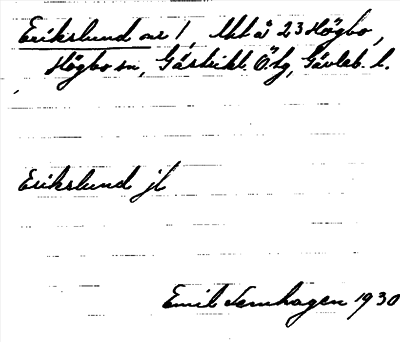 Erikslund nr 1, lht å 23 Högbo,
Högbo sn, Gästrikl. Ö. hg, Gävleb. l.
Erikslund jl
Emil Vernhagen 1930